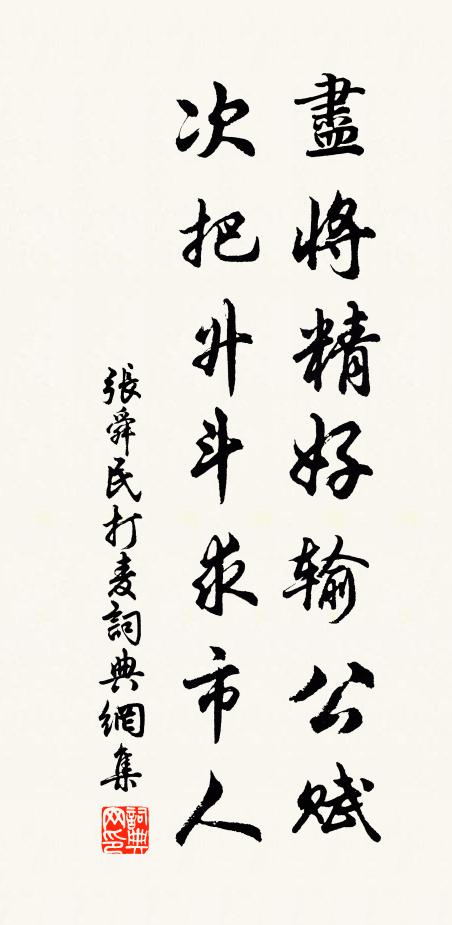 盡將精好輸公賦
次把升斗求市人
張舜民打麦詞典網集
詞典网印